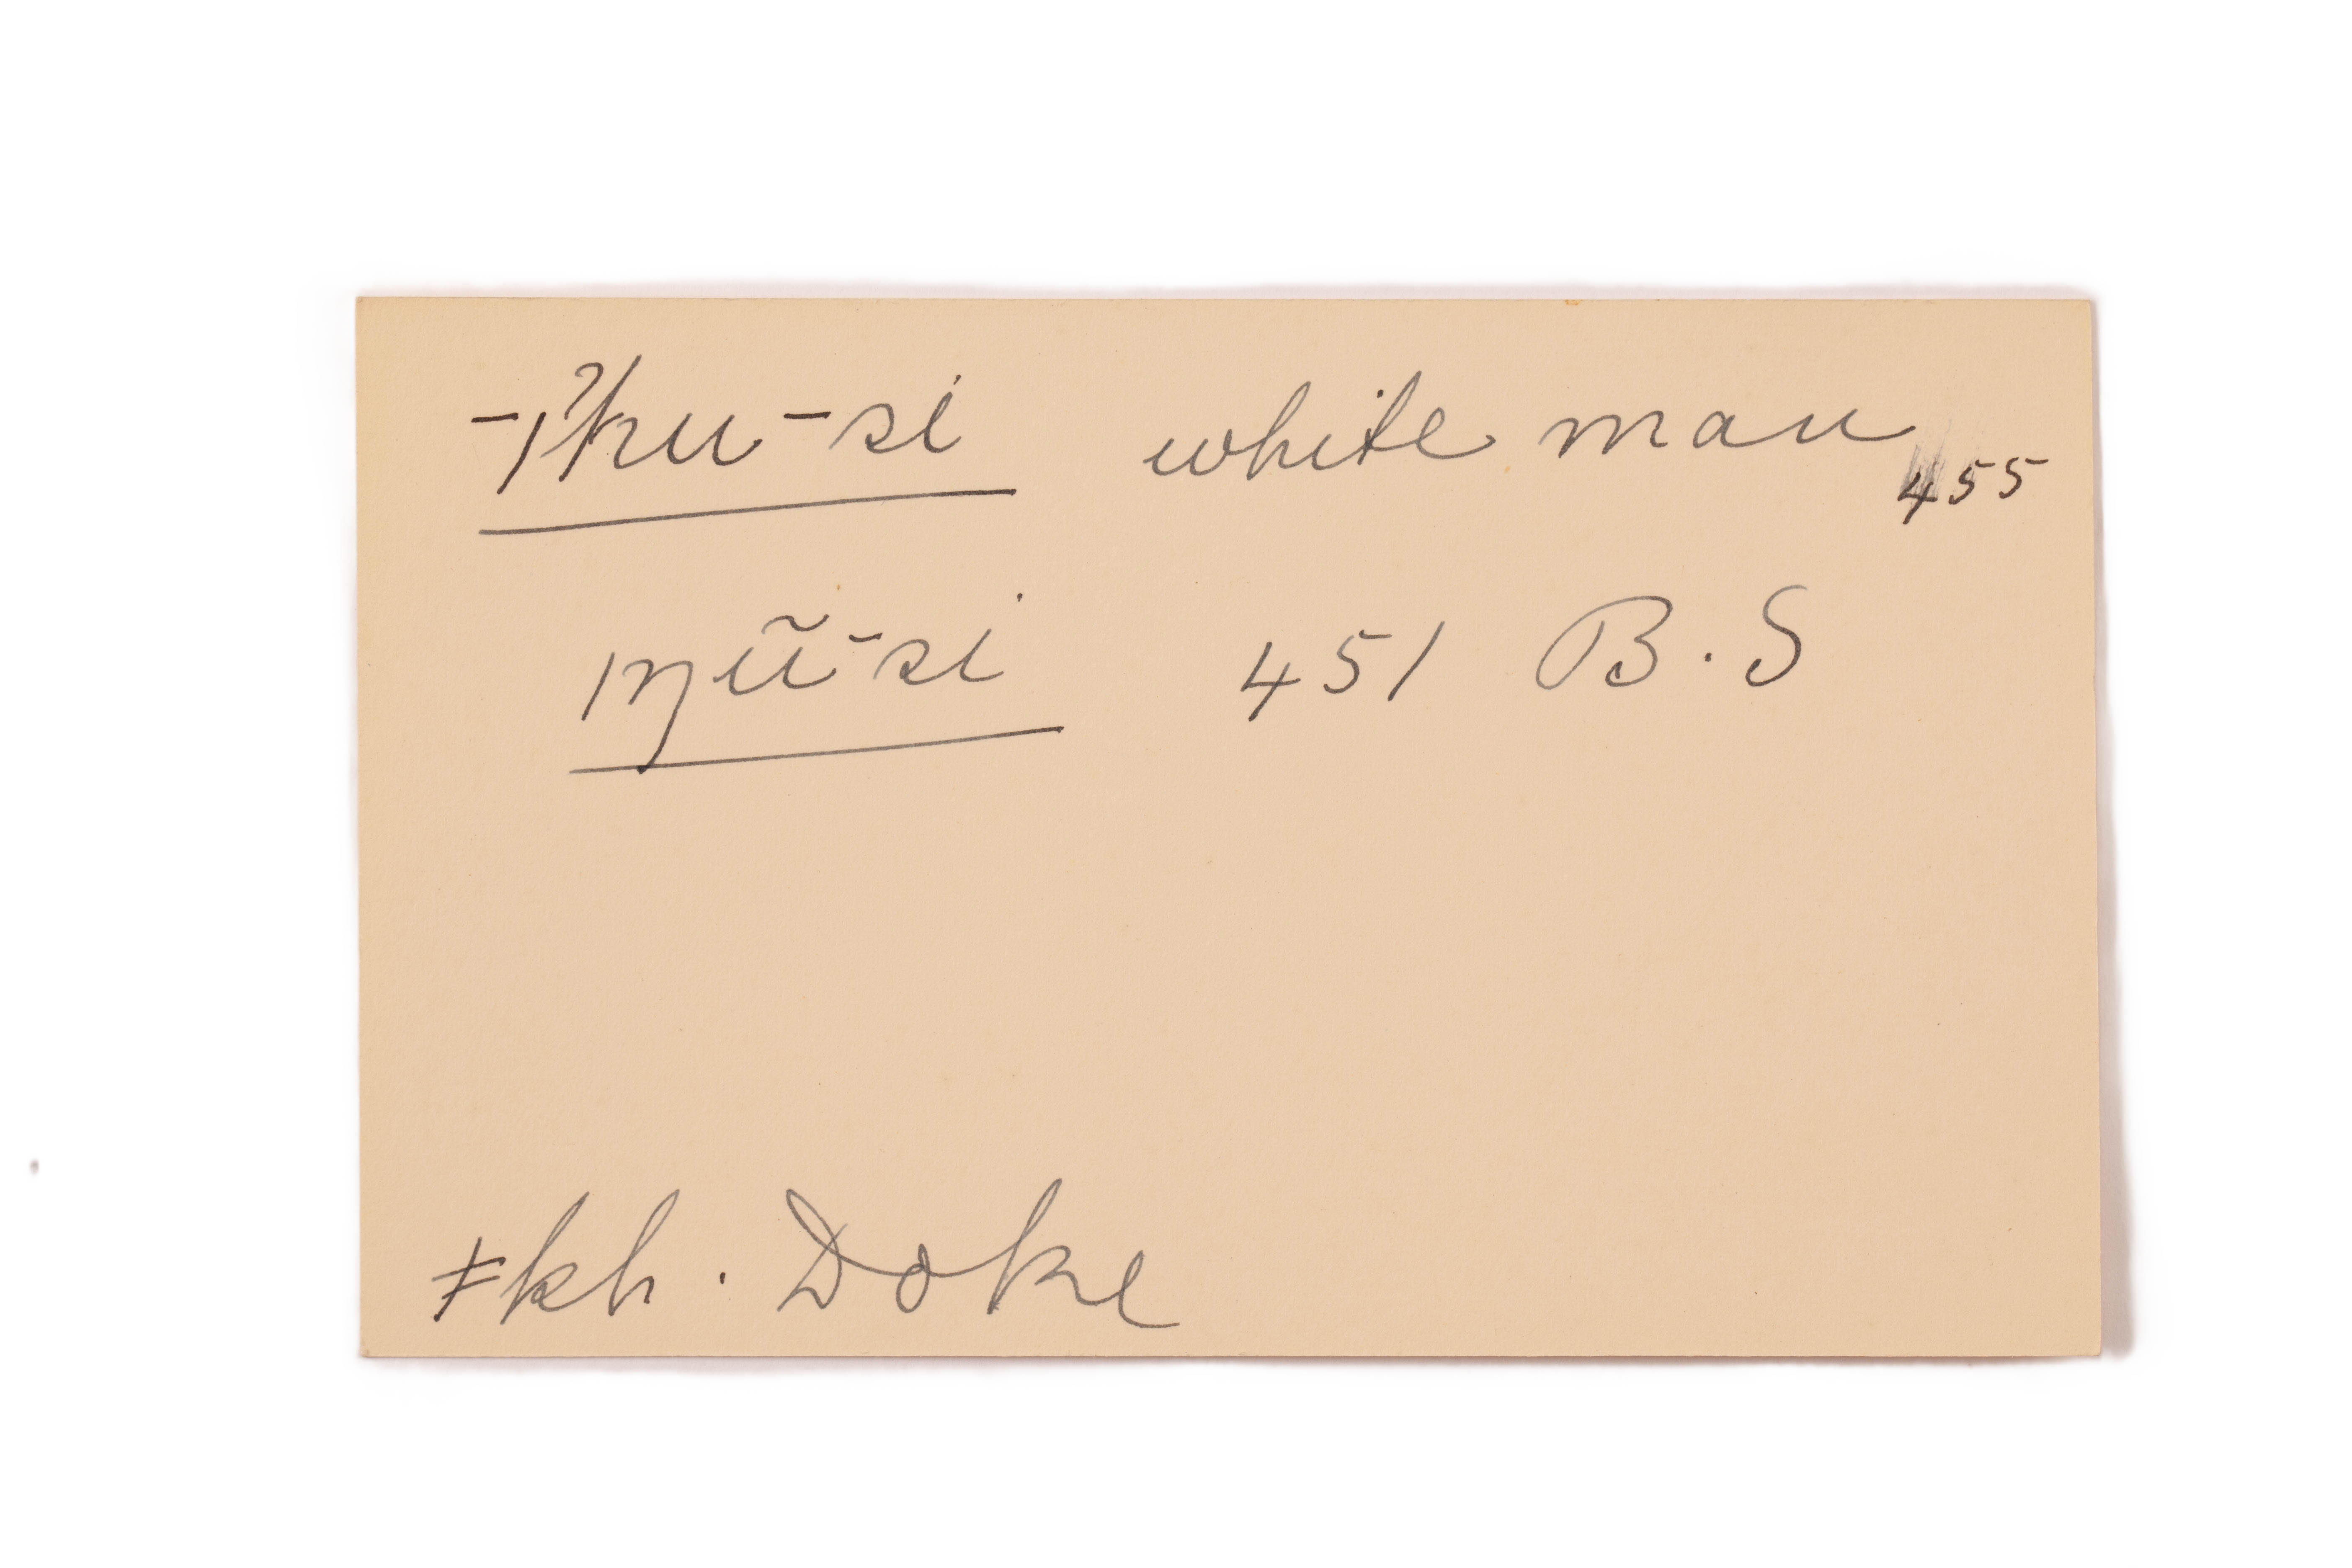 -|ˀku-si white man 455
|ŋũ-si 451 B.S
ǂkh. Doke